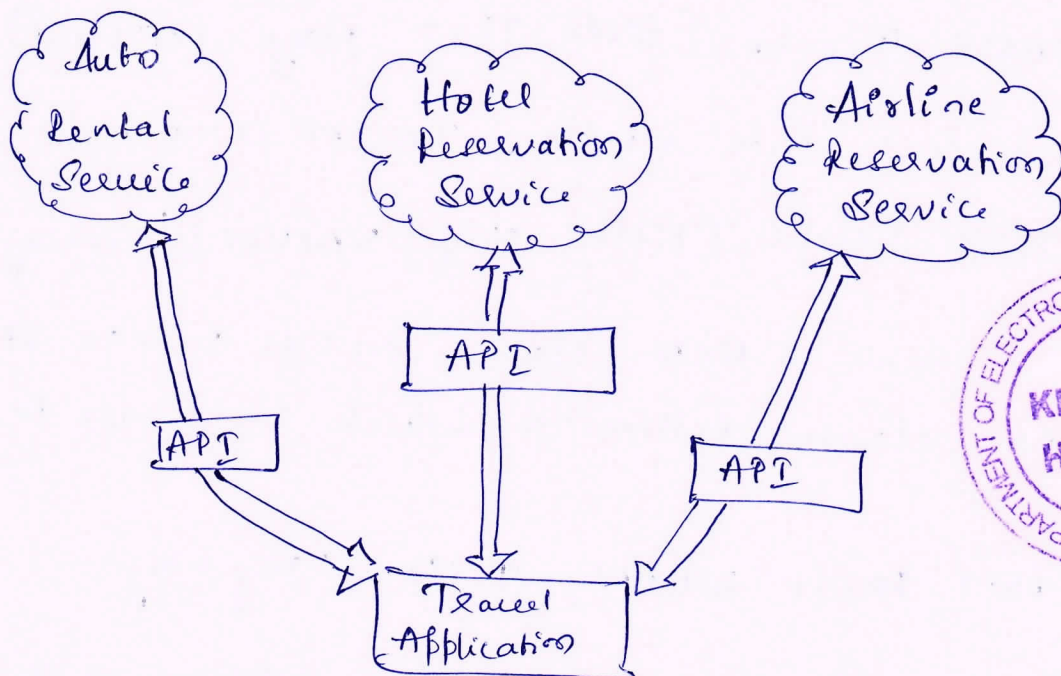 Auto
Rental
Service
Hotel
Reservation
Service
Airline
Reservation
Service
API
API
API
Travel
Application
DEPARTMENT OF ELECTRO